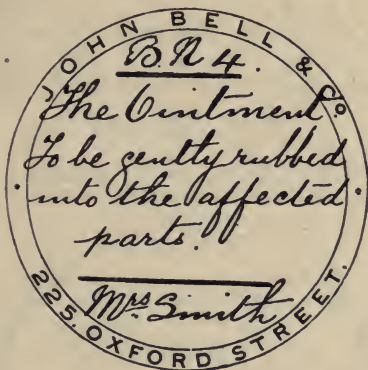 JOHN BELL & Co.
B.N 4.
The Ointment
To be gently rubbed
into the affected
parts.
Mrs. Smith
225, OXFORD STREET.